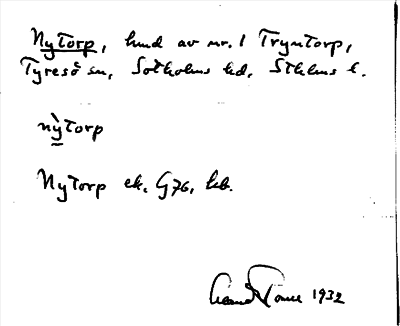 Nytorp, hmd av nr. 1 Tryntorp,
Tyresö sn, Sotholms hd, Sthlms l.
nỳtorp
Nytorp ek. G76, hb.
1932